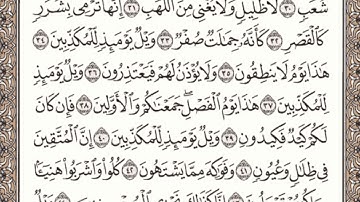 شُعَبٍ ٣٠ لَّا ظَلِيلٍ وَلَا يُغْنِي مِنَ اللَّهَبِ ٣١ إِنَّهَا تَرْمِي بِشَرَرٍ
كَالْقَصْرِ ٣٢ كَأَنَّهُ جِمَالَتٌ صُفْرٌ ٣٣ وَيْلٌ يَوْمَئِذٍ لِّلْمُكَذِّبِينَ ٣٤
هَٰذَا يَوْمُ لَا يَنطِقُونَ ٣٥ وَلَا يُؤْذَنُ لَهُمْ فَيَعْتَذِرُونَ ٣٦ وَيْلٌ يَوْمَئِذٍ
لِّلْمُكَذِّبِينَ ٣٧ هَٰذَا يَوْمُ الْفَصْلِ جَمَعْنَاكُمْ وَالْأَوَّلِينَ ٣٨ فَإِن كَانَ
لَكُمْ كَيْدٌ فَكِيدُونِ ٣٩ وَيْلٌ يَوْمَئِذٍ لِّلْمُكَذِّبِينَ ٤٠ إِنَّ الْمُتَّقِينَ
فِي ظِلَالٍ وَعُيُونٍ ٤١ وَفَوَاكِهَ مِمَّا يَشْتَهُونَ ٤٢ كُلُوا وَاشْرَبُوا هَنِيئًا